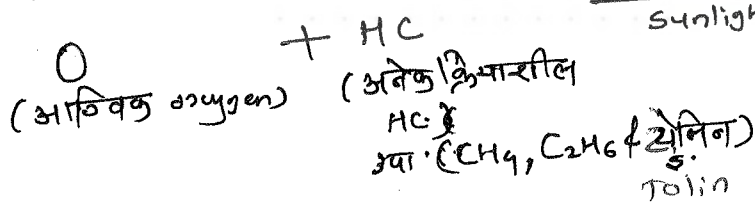 Sunligh
O + HC
(आण्विक oxygen) (अनेक क्रियाशील
HC.
उपा. (CH4, C2H6 & टोलिन)
Tolin